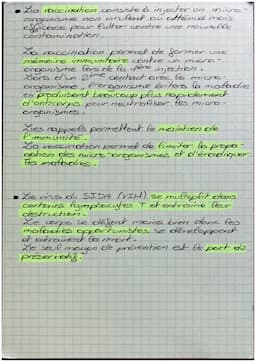 • La vaccination consiste à injecter un micro-
organisme non virulent ou atténué mais
efficace pour lutter contre une nouvelle
contamination.
La vaccination permet de former une
mémoire immunitaire contre un micro-
organisme lors de la 1ère injection.
Lors d'un 2ème contact avec le micro-
organisme, l'organisme évitera la maladie
en produisant beaucoup plus rapidement
d'anticorps pour neutraliser les micro-
organismes.
Les rappels permettent le maintien de
l'immunité.
La vaccination permet de limiter la propa-
gation des micro-organismes et d'éradiquer
les maladies.
• Le virus du SIDA (VIH) se multiplie dans
certains lymphocytes T et entraine leur
destruction.
Le corps se défend moins bien donc les
maladies opportunistes se développent
et entrainent la mort.
Le seul moyen de prévention est le port du
préservatif.